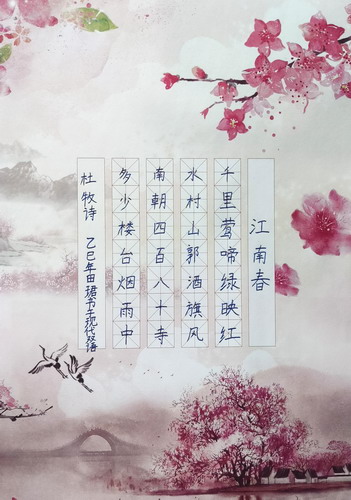 江南春
千里莺啼绿映红
水村山郭酒旗风
南朝四百八十寺
多少楼台烟雨中
杜牧诗 乙巳年田珺书于现代双语